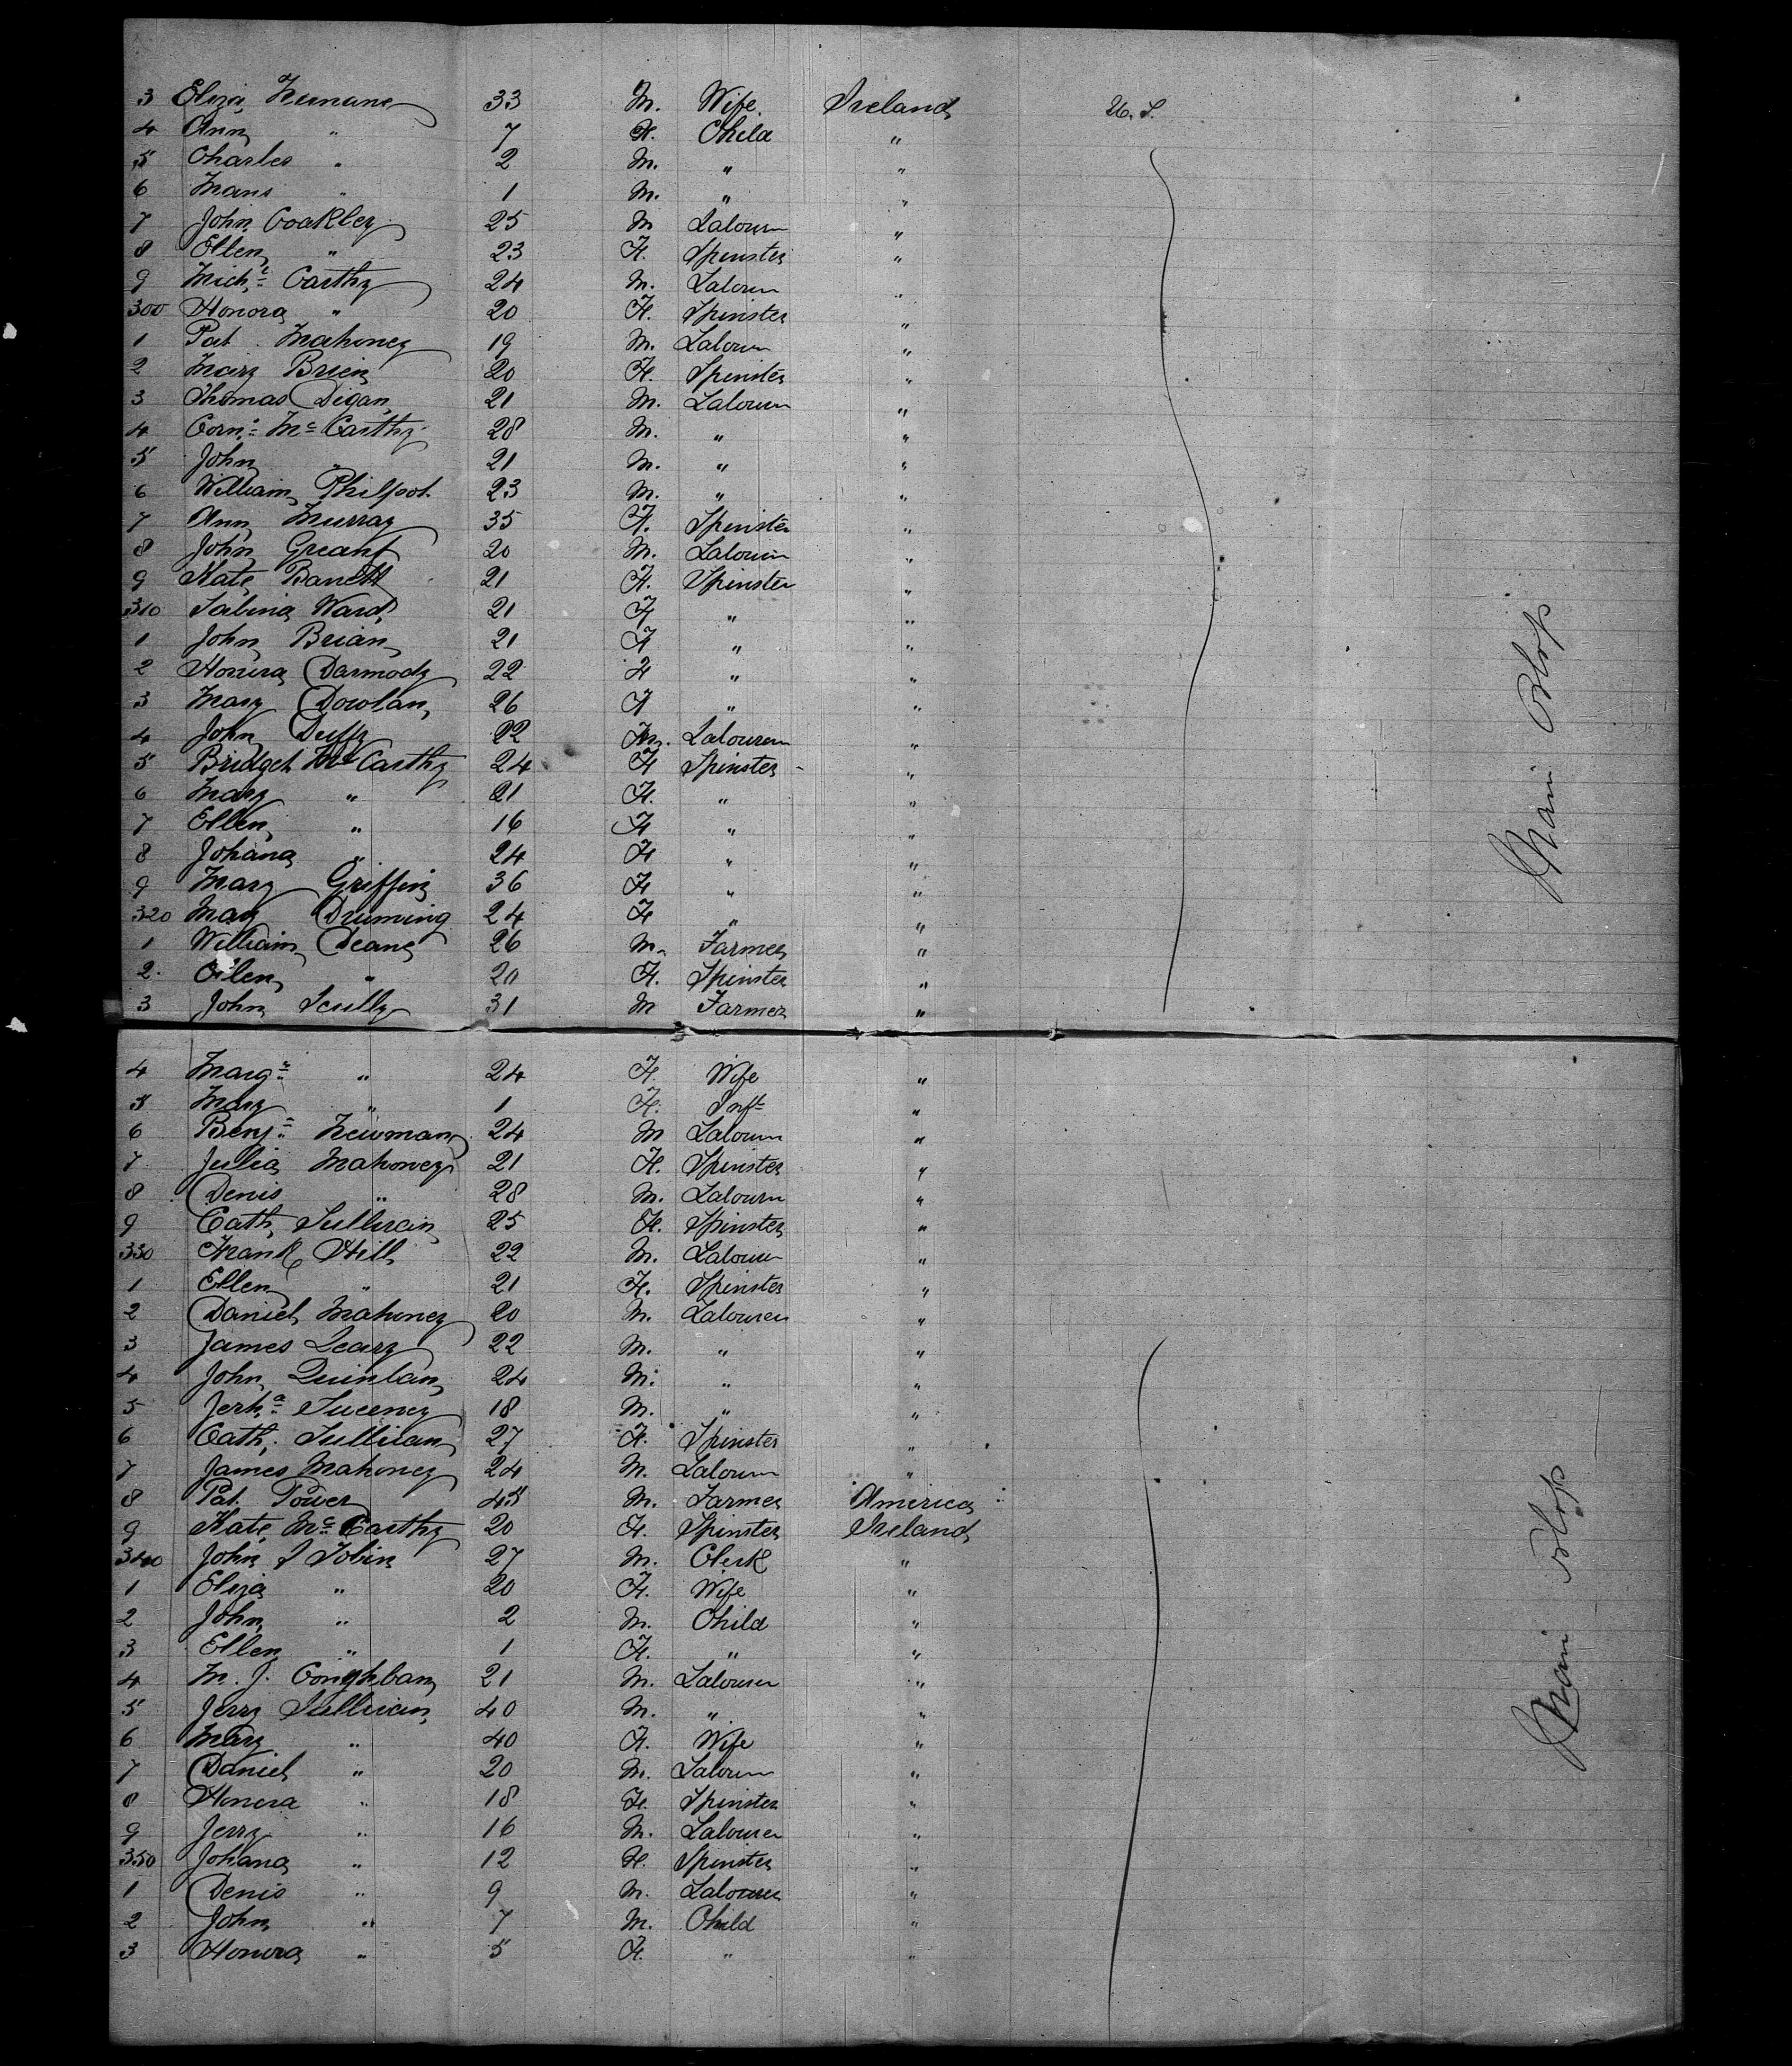 3 Eliza Newnane 33 M. Wife Ireland U. S.
4 Ann " 7 F. Child "
5 Charles " 2 M. " "
6 Hans " 1 M. " "
7 John Coakley 25 M Labourer "
8 Ellen " 23 F. Spinster "
9 Mich.l Carthy 24 M. Labourer "
300 Honora " 20 F. Spinster "
1 Pat Mahoney 19 M. Labourer "
2 Mary Brien 20 F. Spinster "
3 Thomas Digan 21 M. Labourer "
4 Corn.s Mc Carthy 28 M. " "
5 John " 21 M. " "
6 William Philpot 23 M. " "
7 Ann Murray 35 F. Spinster "
8 John Greany 20 M. Labourer "
9 Kate Barrett 21 F. Spinster "
310 Sabina Ward 21 F " "
1 John Brian 21 F " "
2 Honora Darmody 22 F " "
3 Mary Dowlan 26 F " "
4 John Duffy 22 M. Labourer "
5 Bridget Mc Carthy 24 F Spinster "
6 Mary " 21 F. " "
7 Ellen " 16 F " "
8 Johana " 24 F " "
9 Mary Griffin 36 F " "
320 May Druming 24 F " "
1 William Deane 26 M. Farmer "
2 Ellen " 20 F. Spinster "
3 John Scully 31 M Farmer "
4 Marg.t " 24 F. Wife "
5 Mary " 1 F. Inft "
6 Benj.n Newman 24 M Labourer "
7 Julia Mahoney 21 F. Spinster "
8 Denis " 28 M. Labourer "
9 Cath. Sullivan 25 F. Spinster "
330 Frank Hill 22 M. Labourer "
1 Ellen " 21 F. Spinster "
2 Daniel Mahoney 20 M. Labourer "
3 James Leary 22 M. " "
4 John Quinlan 24 M. " "
5 Jerh.a Sweeney 18 M. " "
6 Cath. Sullivan 27 F. Spinster "
7 James Mahoney 24 M. Labourer "
8 Pat. Power 45 M. Farmer America
9 Kate Mc Carthy 20 F. Spinster Ireland
340 John J Tobin 27 M. Clerk "
1 Eliza " 20 F. Wife "
2 John " 2 M. Child "
3 Ellen " 1 F. " "
4 M. J. Coughlan 21 M. Labourer "
5 Jerry Sullivan 40 M. " "
6 Mary " 40 F. Wife "
7 Daniel " 20 M. Labourer "
8 Honora " 18 F. Spinster "
9 Jerry " 16 M. Labourer "
350 Johana " 12 F. Spinster "
1 Denis " 9 M. Labourer "
2 John " 7 M. Child "
3 Honora " 5 F. " "
Main Orlop
Main Orlop